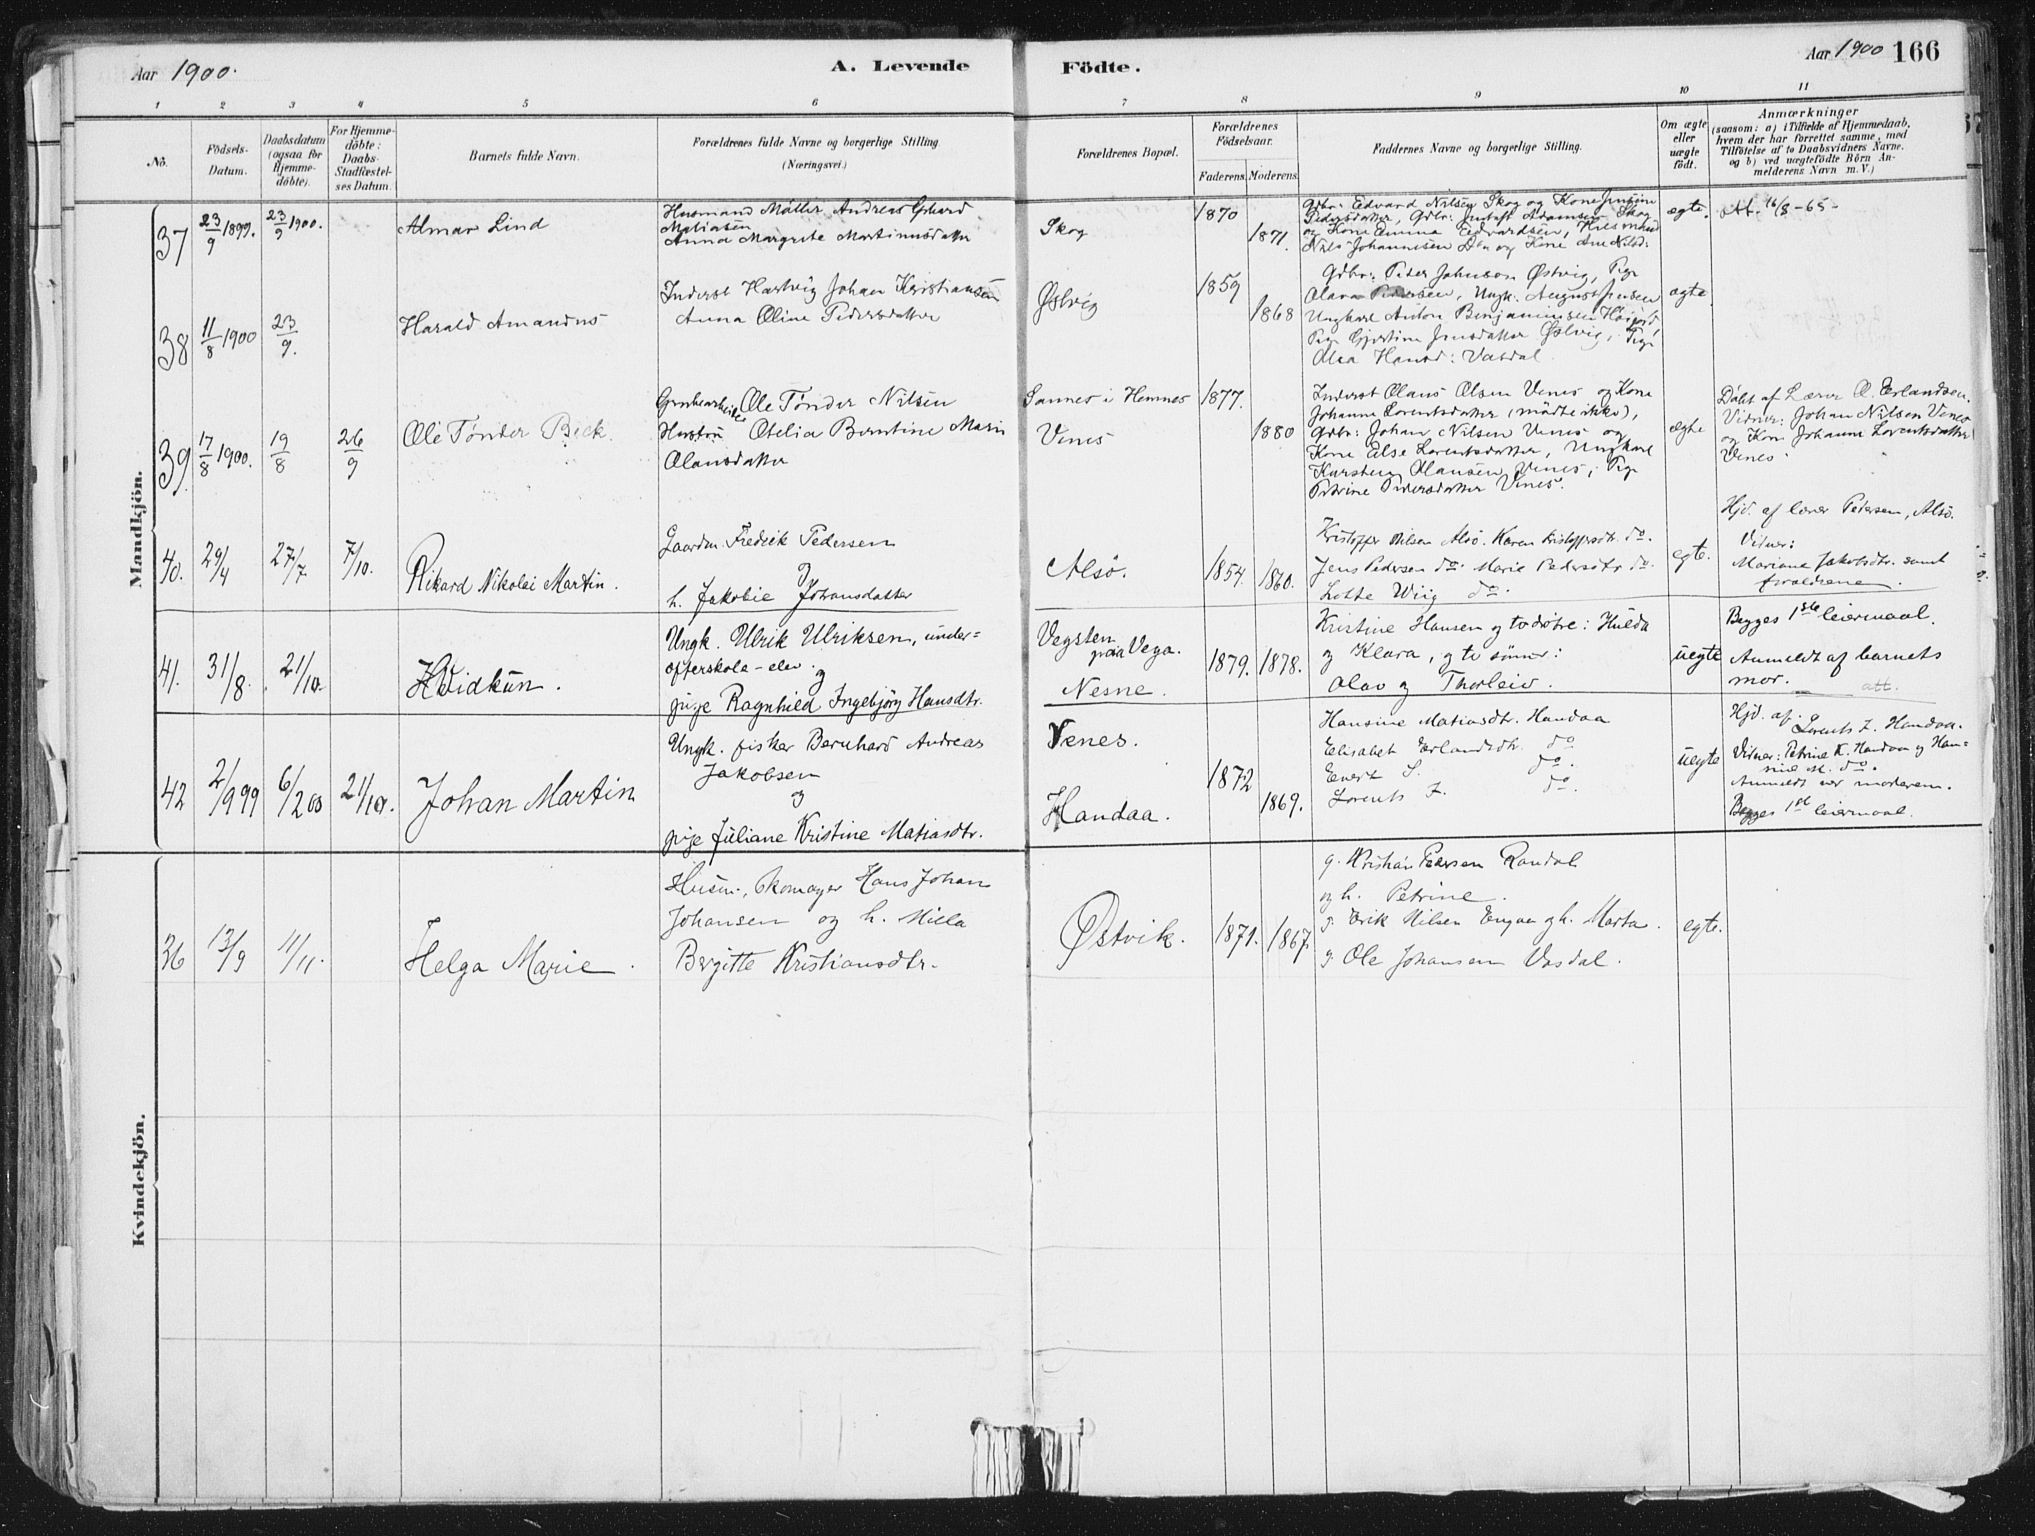 Aar 1900.
A. Levende
Födte.
Aar 1900
166
1 2 3 4 5 6 7 8 9 10 11
No.
Födsels-
Datum.
Daabsdatum
(ogsaa for
Hjemme-
döbte).
For Hjemme-
döbte:
Daabs-
Stadfæstel-
ses Datum.
Barnets fulde Navn.
Forældrenes fulde Navne og borgerlige Stilling
(Næringsvei.)
Forældrenes Bopæl.
Forældrenes
Födselsaar.
Faderens.
Moderens.
Faddernes Navne og borgerlige Stilling.
Om ægte
eller
uægte
födt.
Anmærkninger
(saasom: a) i Tilfælde af Hjemmedaab,
hvem der har forrettet samme, med
Tilföielse af to Daabsvidners Navne.
og b) ved uægtefödte Börn An-
melderens Navn m. V.)
Mandkjön.
37
23/9 1899.
23/9 1900.
Almar Lind
Husmand Möller Andreas Gerhard
Matiasen
Anna Margrete Martinusdatter
Skog
1870
1871.
Gdbr: Edvard Nilsen Skog og Kone Justine
Pedersdatter, Gdbr: Gustaf Adamsen Skog
og Kone Emma Edvardsen, Husmand
Nils Johannesen Den og Kone Ane Nilsd:
ægte.
16/8-65
38
11/8 1900
23/9.
Harald Amandus
Inderst Hartvig Johan Kristiansen
Anna Oline Pedersdatter
Østvig
1859
1868
Gdbr: Peter Johnson Østvig, Pige
Olava Pedersen, Ungk. August Jensen
Ungkarl Anton Benjaminsen
Pige Gjertine Jensdatter Østvig, Pige
Olea Hansd: Vasdal
ægte
39
17/8 1900.
19/8
26/9
Ole Tønder Bech.
Grubearbeider Ole Tönder Nilsen
Hustru Otelia Berntine Marie
Olausdatter
Sannes i Hemnes
Venes
1877.
1880
Inderst Olaus Olsen Venes og Kone
Johanne Lorentsdatter (mödte ikke),
Gdbr: Johan Nilsen Venes og
Kone Else Lorentsdatter, Ungkarl
Karsten Olausen Venes, Pige
Petrine Pedersdatter Venes.
ægte
Döbt af Lærer O. Erlandsen.
Vidner: Johan Nilsen Venes
og Kone Johanne Lorentsdatter
Venes
40.
29/4
27/7
7/10.
Rikard Nikolai Martin.
Gaardm. Fredrik Pedersen
og
h. Jakobie Johansdatter
Alsö.
1854.
1860.
Kristoffer Nilsen Alsö. Karen Kristoffersdtr. do.
Jens Pedersen do. Marie Pedersdtr do.
Lotte Wiig do.
egte.
Hjd. af lærer Pedersen, Alsö.
Vitner:
Mariane Jakobsdtr. samt
forældrene.
41.
31/8.
21/10.
Hvidkun.
Ungk. Ulrik Ulriksen, under=
ofserskole-elev.
og
pige Ragnhild Ingebjørg Hansdtr.
Vegsten
paa Vega.
Nesne.
1879.
1878.
Kristine Hansen og to døtre: Hulda
og Klara, og to sønner:
Olav og Thorleiv.
uegte
Begges 1ste leiermaal.
Anmeldt af barnets
mor.
att.
42
2/9 99
6/2 00
21/10.
Johan Martin
Ungk. fisker Bernhard Andreas
Jakobsen
og
pige Juliane Kristine Matiasdtr.
Venes.
Handaa.
1872
1869.
Hansine Matiasdtr. Handaa
Elisabet Erlandsdtr. do
Evert S. do.
Lorents Z. do.
uegte
Hjd. af Lorents Z. Handaa.
Vitner: Petrine K. Handaa og Han=
sine M. do.
Anmeldt av moderen.
Begges 1st leiermaal.
Kvindekjön.
36
13/9
11/11.
Helga Marie.
Husm., skomager Hans Johan
Johansen og h. Milla
Bergitte Kristiansdtr.
Østvik.
1871.
1867.
g. Kristian Pedersen Randal
og h. Petrine.
g. Erik Nilsen Engan og h. Marta.
g. Ole Johansen Vasdal.
egte.